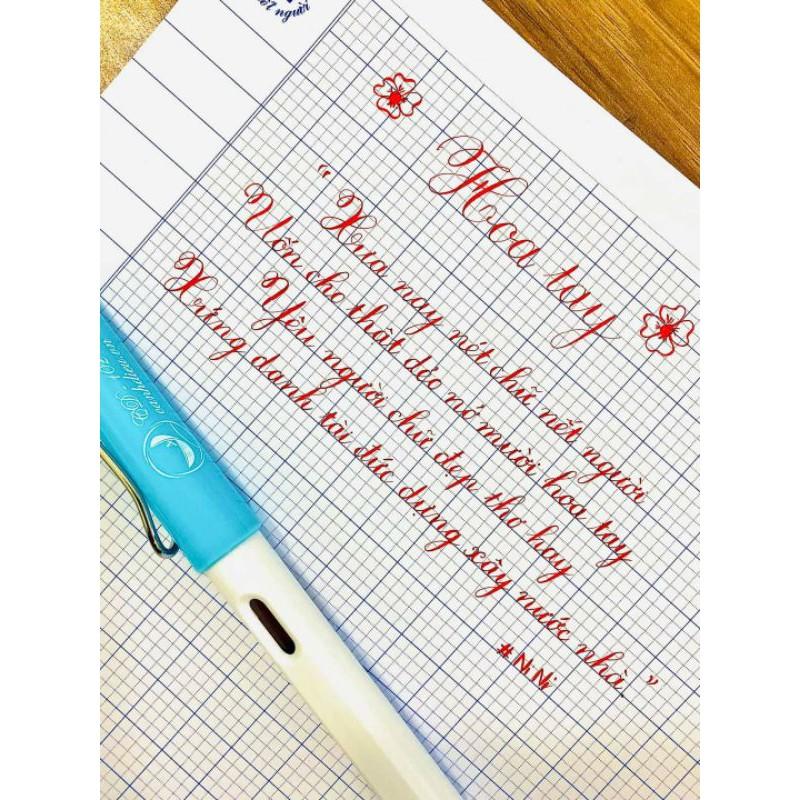 nết người
Hoa tay
“Xưa nay nét chữ nết người
Uốn cho thật dẻo nở mười hoa tay
Yêu người chữ đẹp thơ hay
Xứng danh tài đức dựng xây nước nhà.”
#NhiNhi